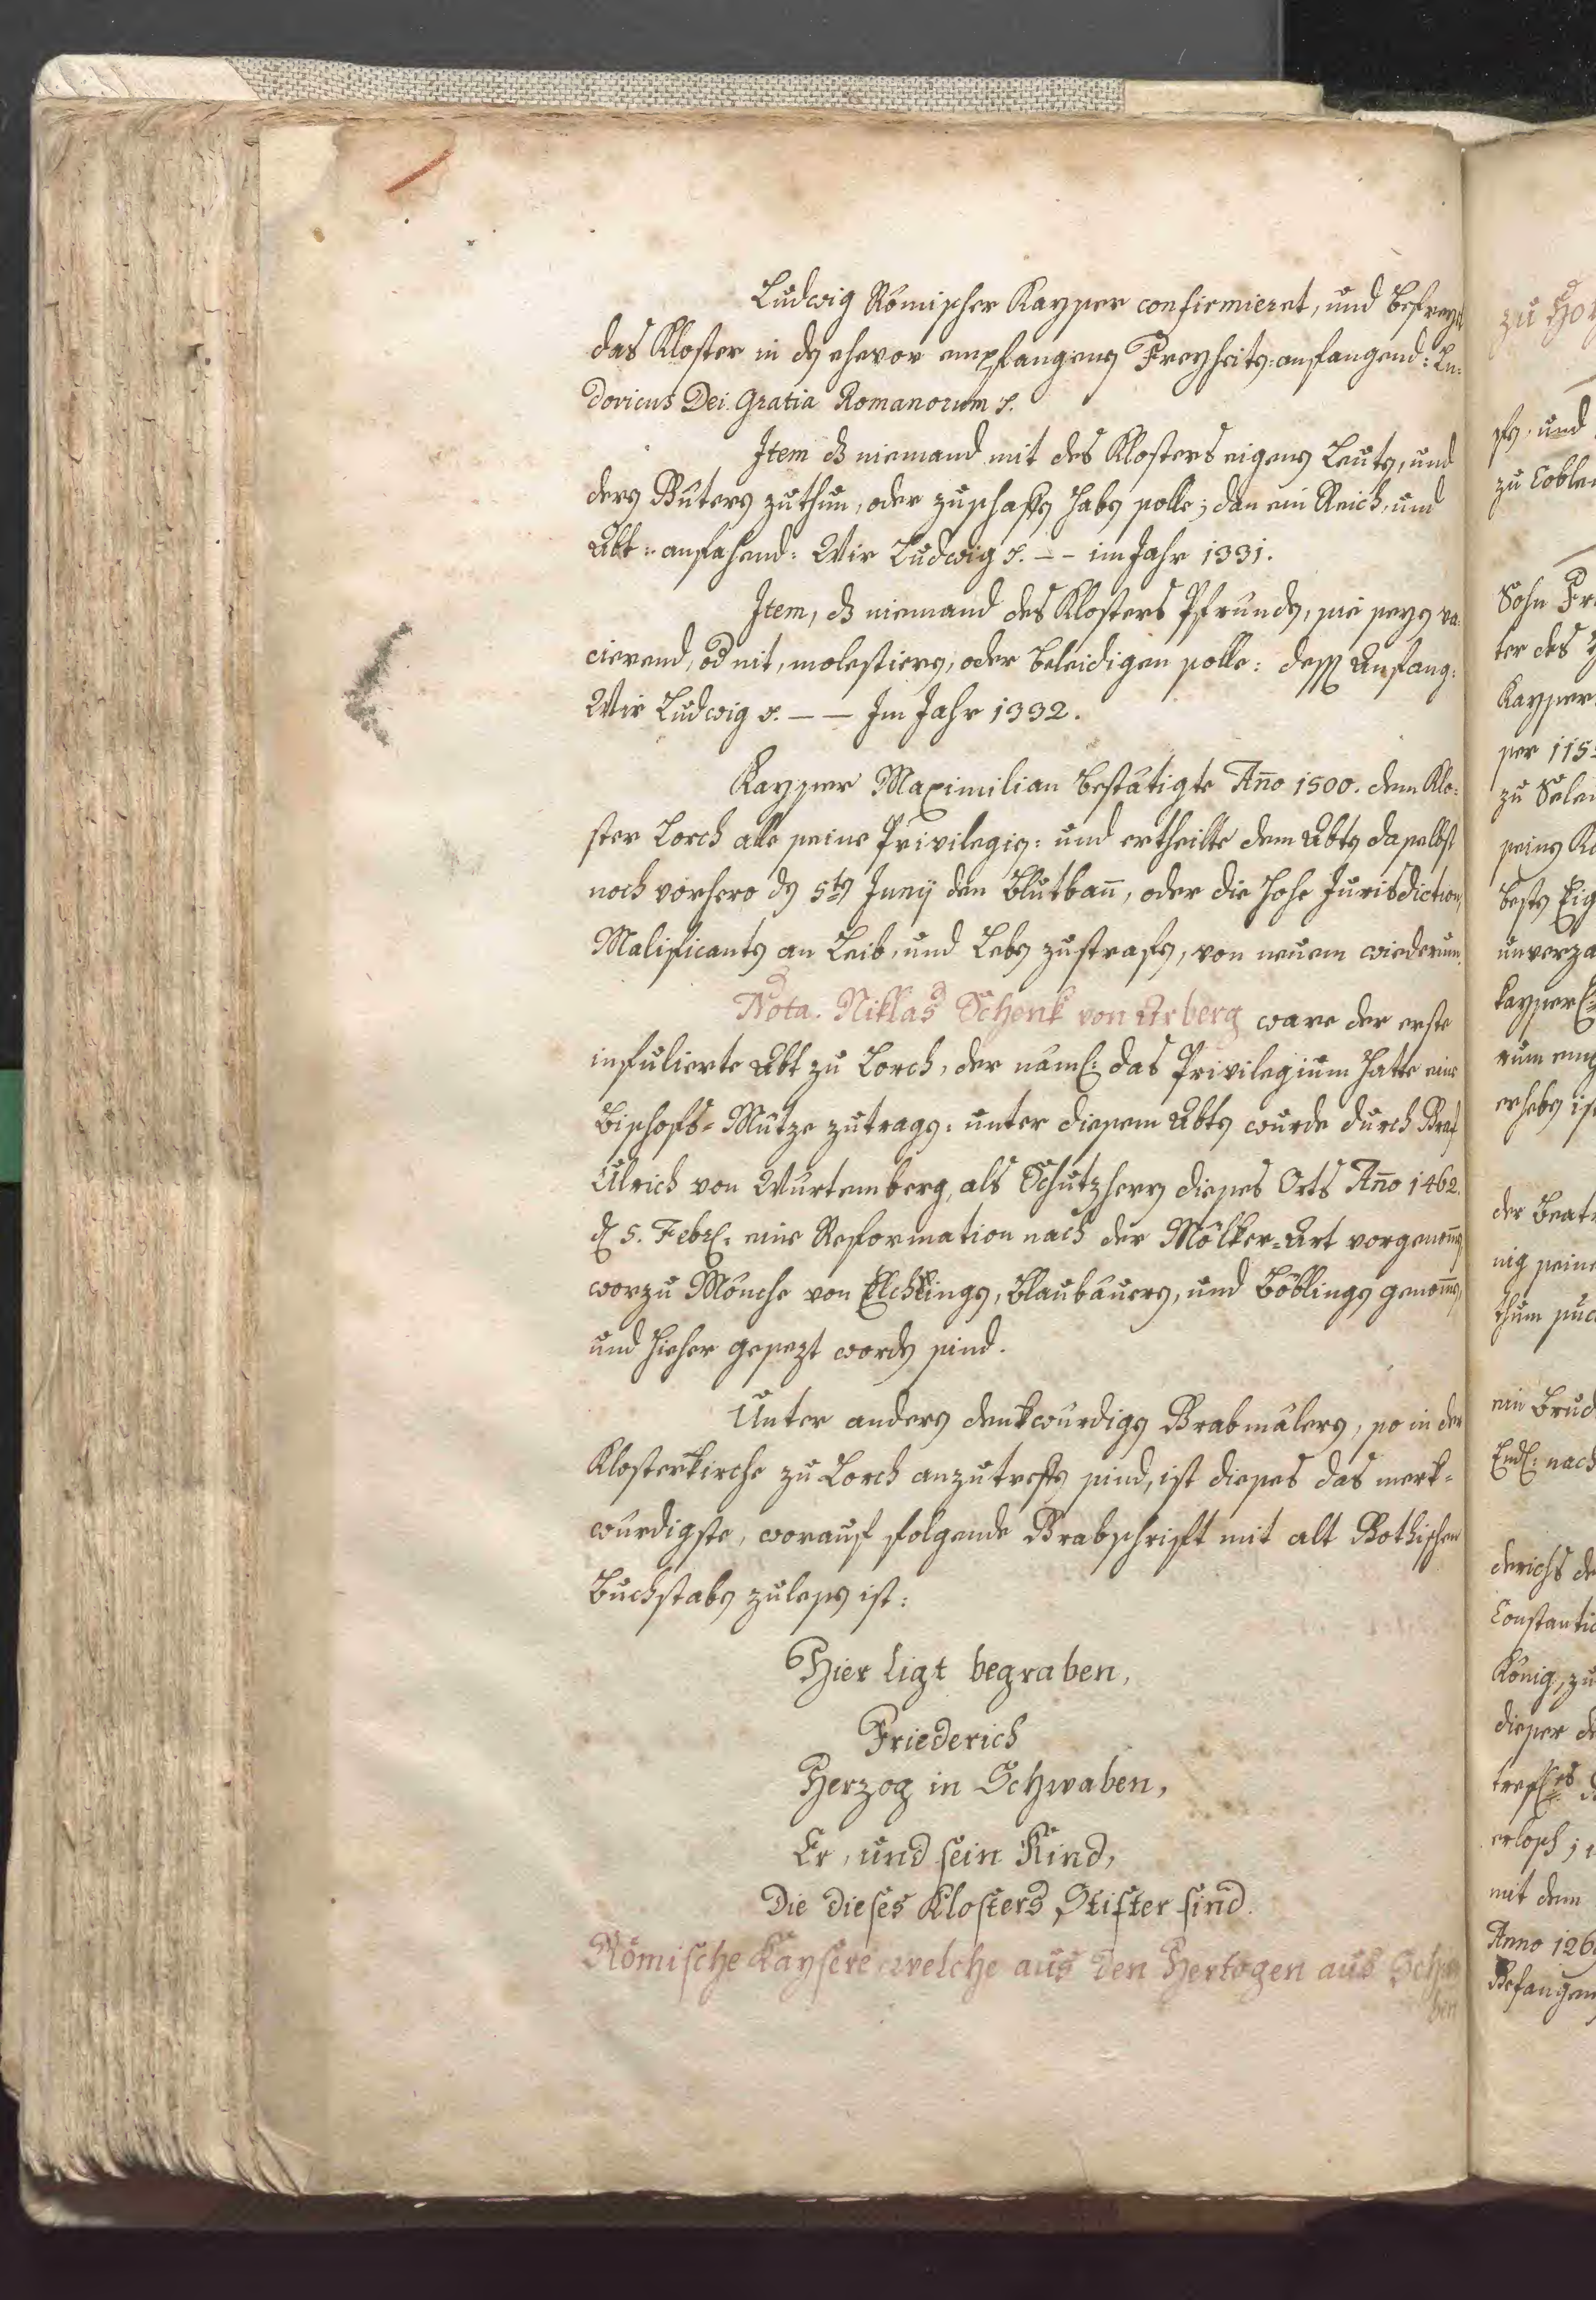 Ludwig Römischer Kayser confirmieret, und befreyt
das Kloster in den ehevor empfangenen Freyheiten: anfangend: Lu-
dovicus Dei Gratia Romanorum
Item dz niemand mit des Klosters eigenen Leuten, und
deren Güteren zuthun, oder zuschaffen haben solle; dan ein Reich, und
Abt: anfahend: Wir Ludwig -- im Jahr 1331.
Item, dz niemand des Klosters Pfrunden, sie seyen va-
cierend, od nit, molestieren, oder beleidigen solle: dessen Anfang:
Wir Ludwig — — Im Jahr 1332.
Kayser Maximilian bestätigte Año 1500. dem Klo-
ster Lorch alle seine Privilegien: und ertheilte dem Abten daselbst
noch vorhero den 5ten Junij den Blutban̄, oder die hohe Jurisdiction,
Malificanten an Leib, und Leben zustrafen, von neuem wiederum.
Nota. Niklas Schenk von Arberg ware der erste
infulierte Abt zu Lorch, der näml: das Privilegium hatte eine
Bischofs-Mütze zutragen: unter diesem Abten wurde durch Graf
Ulrich von Würtemberg, als Schutzherrn dieses Orts Año 1462.
d 5. Febr: eine Reformation nach der Mölker-Art vorgenom̄en
worzu Mönche von Elchingen, Blaubäueren, und Böblingen genom̄en,
und hieher gesezt worden sind.
Unter anderen denkwürdigen Grabmäleren, so in der
Klosterkirche zu Lorch anzutreffen sind, ist dieses das merk-
würdigste, worauf folgende Grabschrift mit alt Gothischen
Buchstaben zulesen ist:
Hier ligt begraben,
Friederich
Herzog in Schwaben,
Er, und sein Kind,
Die dieses Klosters Stifter sind.
Römische Kaysere, welche aus den Hertogen aus Schwa
ben
zu Ho
und
zu Coble
Sohn Fr
ter des
Kayser
ser 115
zu Sale
seinen K
besten Eig
unverza
kayserl
rum em
erheben is
der Beat
nig seine
thum
ein Brud
Endl: nach
derichs de
Constanti
König, zu
dieser d
erlosch;
mit dem
Anno 126
Gefangen